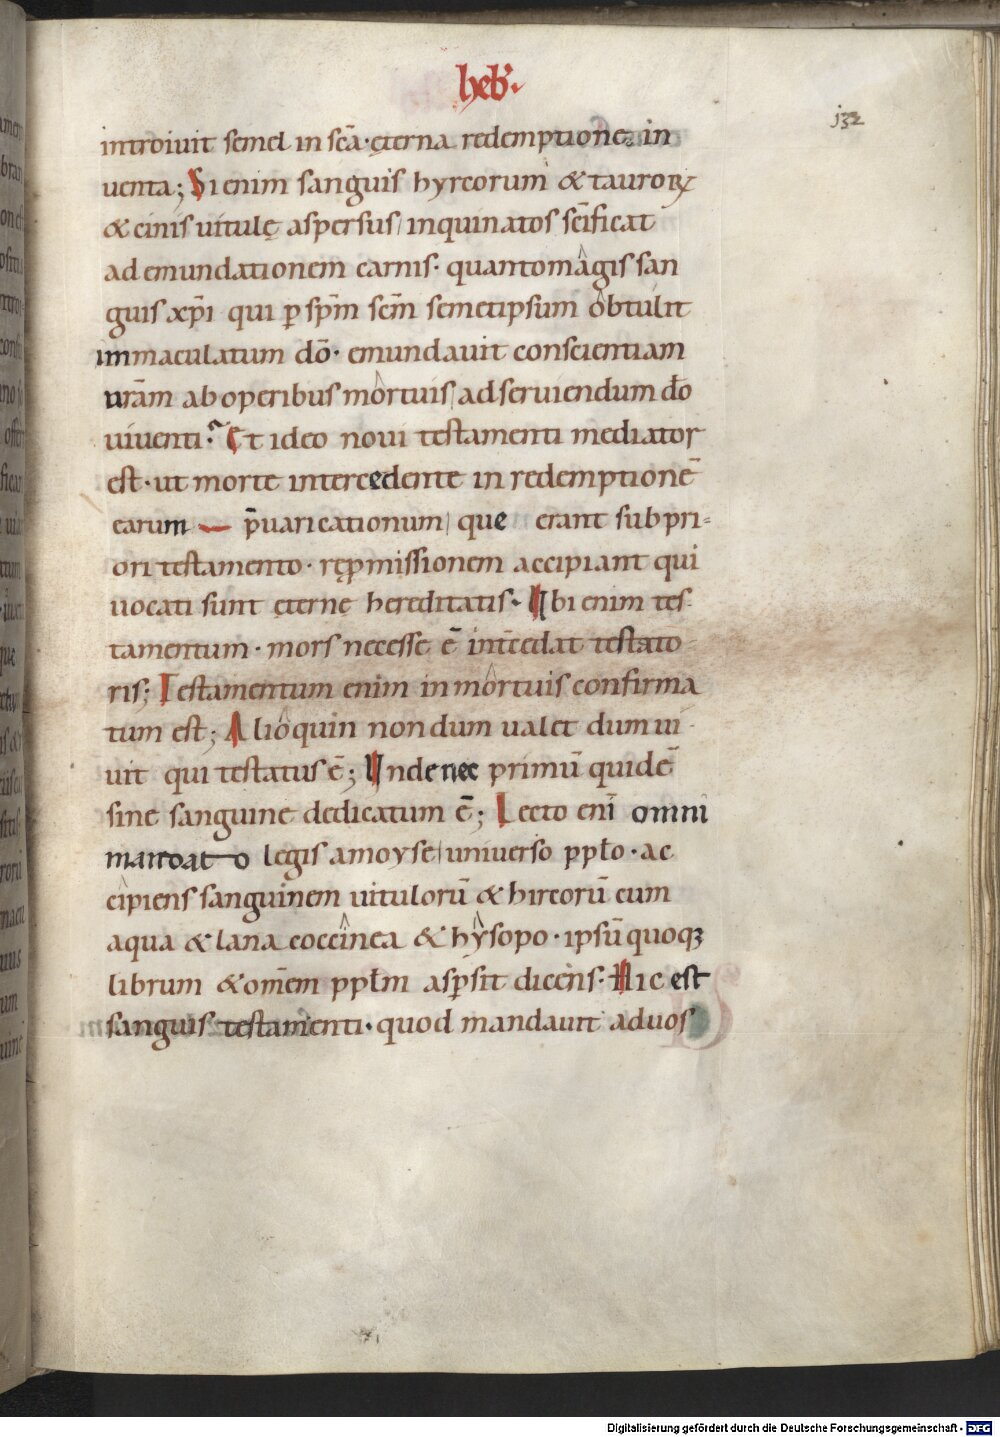 heb̄.
132
introiuit semel in sc̄a·ęterna redemptionē in
uenta; Si enim sanguis hyrcorum & tauroꝝ
& cinis uitulę aspersus inquinatos sc̄ificat
ad emundationem carnis· quantomagis san
guis xp̄i qui ꝑ sp̄m sc̄m semetipsum obtulit
immaculatum dō· emundauit conscientiam
urām ab operibus mortuis ad seruiendum dō
uiuenti. Et ideo noui testamenti mediator
est·ut morte intercedente in redemptionē
earum p̄uaricationum que erant sub pri-
ori testamento· repmissionem accipiant qui
uocati sunt ęternę hereditatis· Ubi enim tes
tamentum·mors necesse ē int̄cedat testato
ris; Testamentum enim in mortuis confirma
tum est; Alioquin nondum ualet dum ui
uit qui testatus ē; Unde nec primū quidē
sine sanguine dedicatum ē; Lecto enī omni
mandato legis a moyse uniuerso ppło·ac
cipiens sanguinem uitulorū & hircorū cum
aqua & lana coccinea & hysopo·ipsū quoqꝫ
librum & om̄em ppłm asꝑsit dicens· Hic est
sanguis testamenti·quod mandauit ad uos
Digitalisierung gefördert durch die Deutsche Forschungsgemeinschaft - DFG